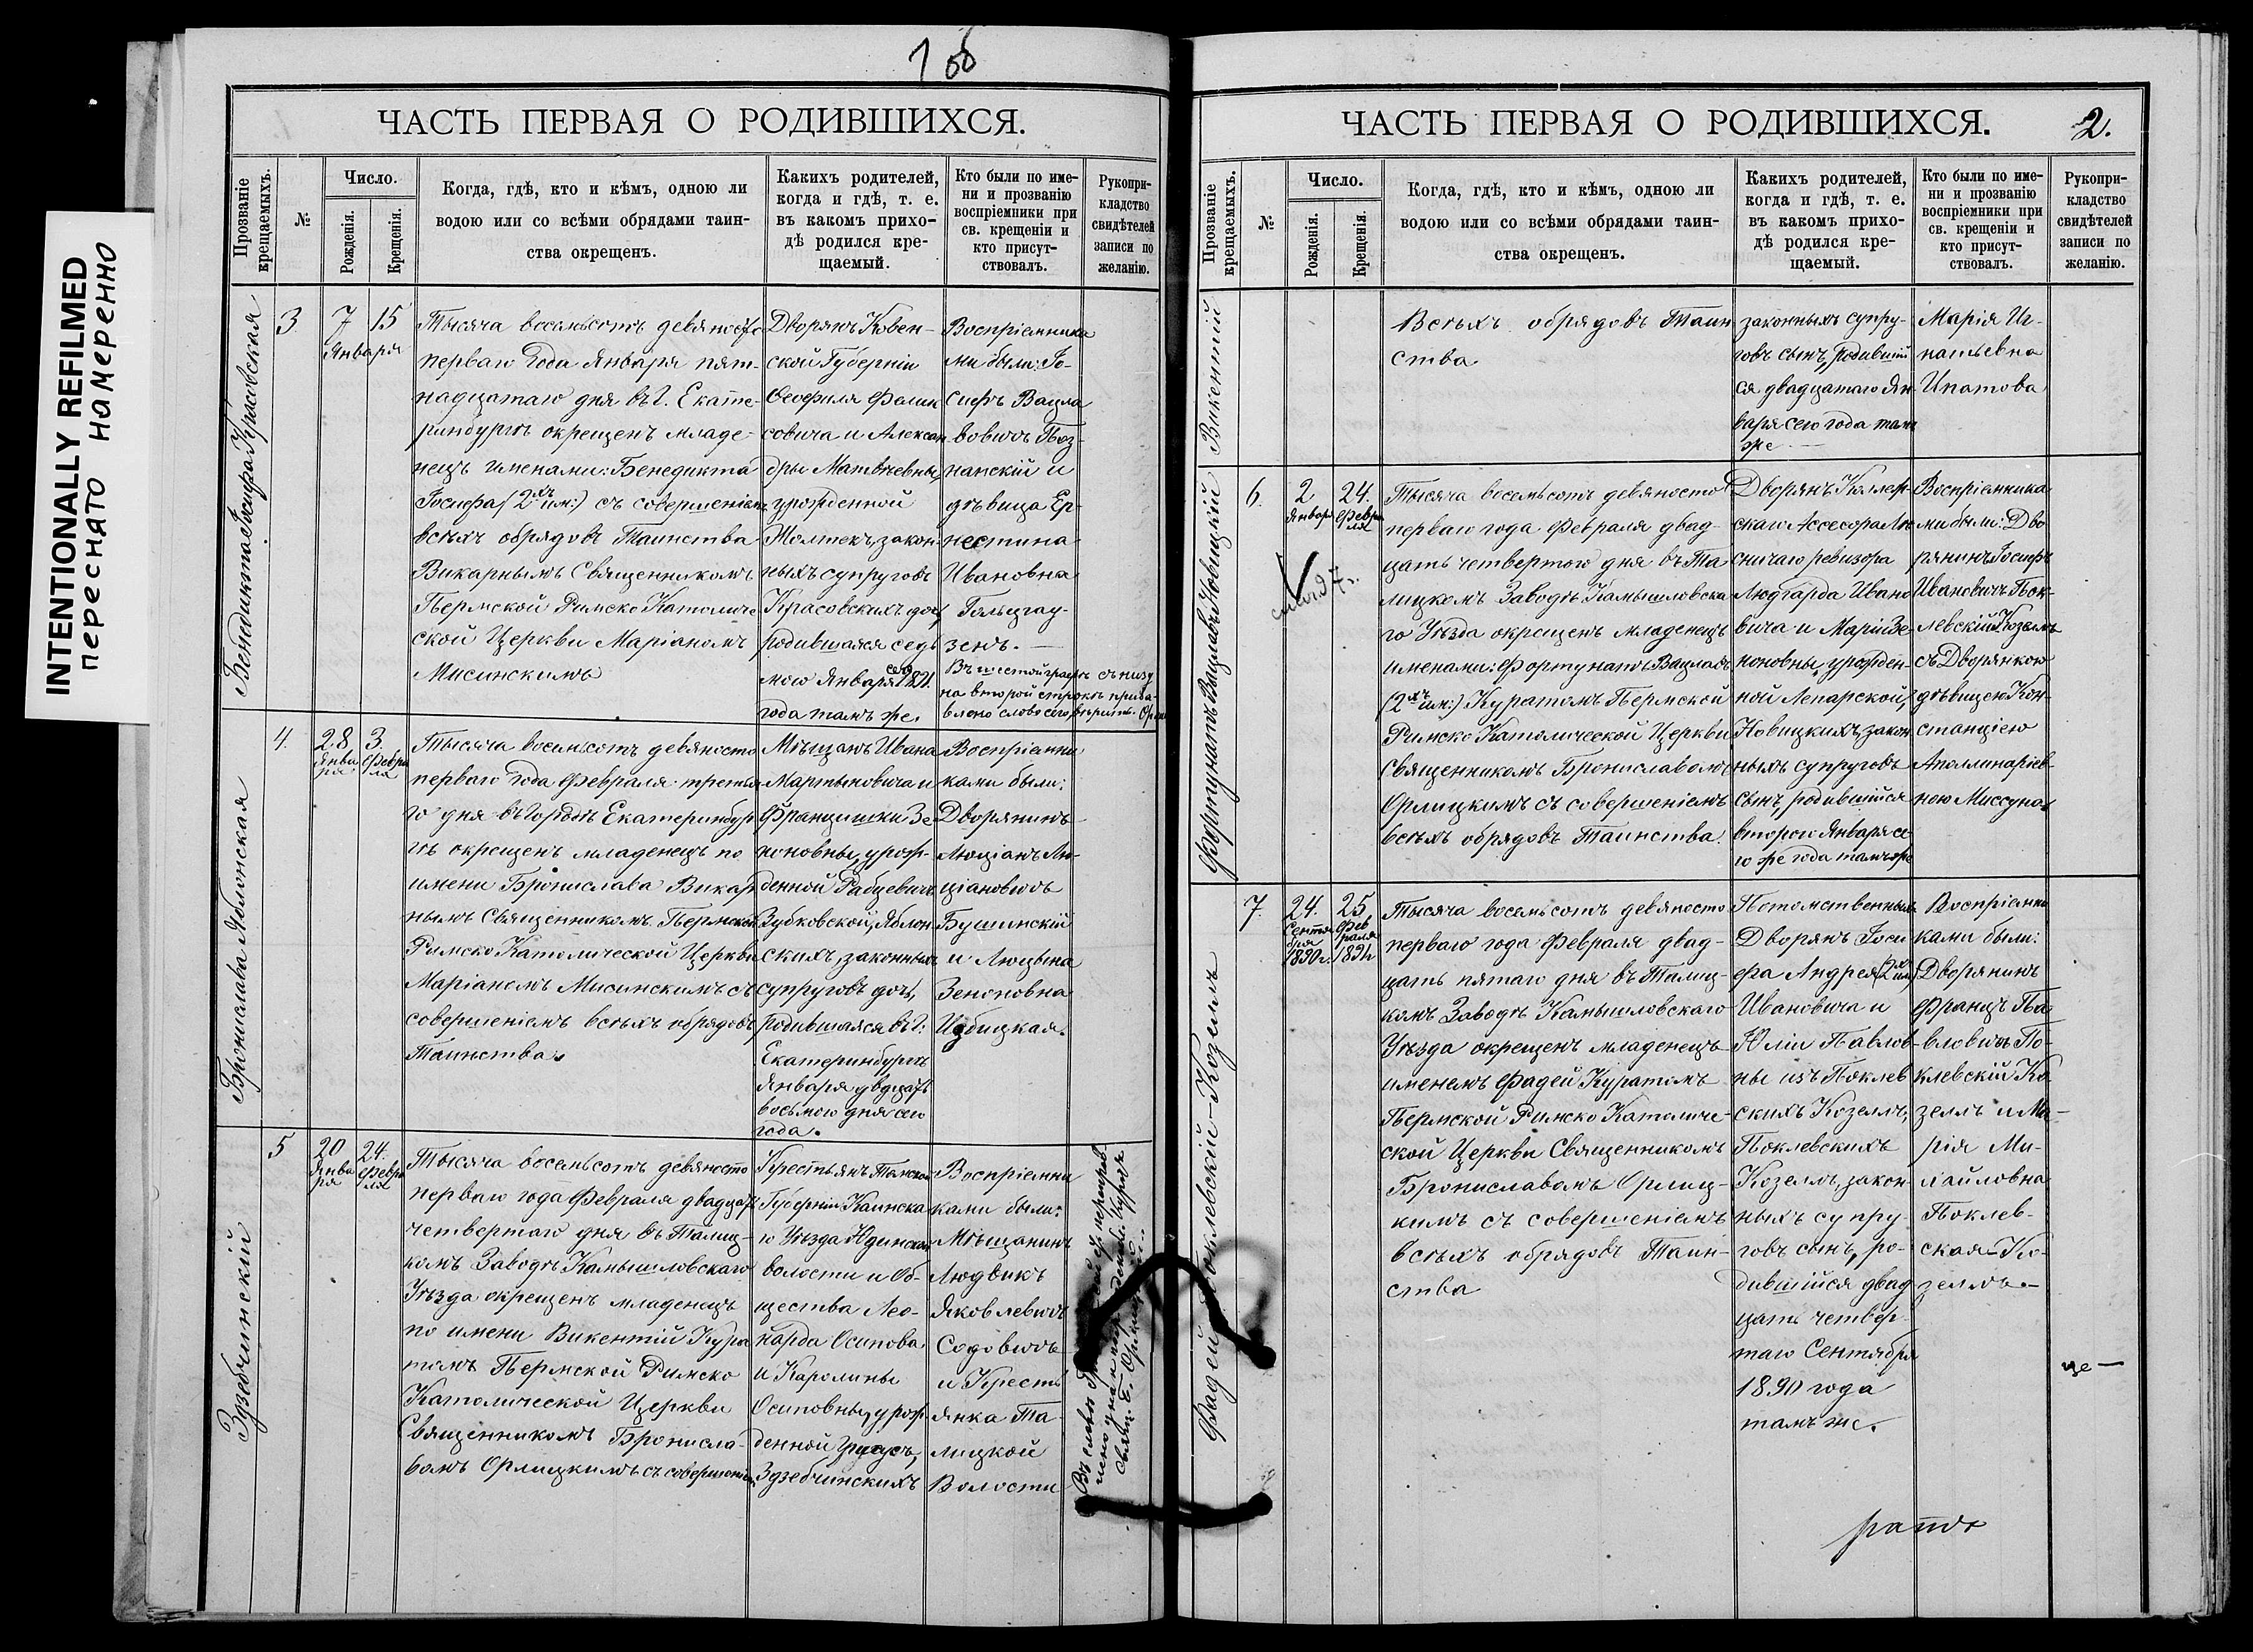 INTENTIONALLY REFILMED
переснято намеренно
1 об
ЧАСТЬ ПЕРВАЯ О РОДИВШИХСЯ.
Прозваніе крещаемыхъ.
№
Число.
Рожденія.
Крещенія.
Когда, гдѣ, кто и кѣмъ, одною ли
водою или со всѣми обрядами таин-
ства окрещенъ.
Какихъ родителей,
когда и гдѣ, т. е.
въ какомъ прихо-
дѣ родился кре-
щаемый.
Кто были по име-
ни и прозванію
воспріемники при
св. крещеніи и
кто присут-
ствовалъ.
Рукопри-
кладство
свидѣтелей
записи по
желанію.
Бенедикта Іосифа Красовская
3
7
15
Января
Тысяча восемьсотъ девяносто
перваго года Января пят-
надцатаго дня въ г. Екате-
ринбургѣ окрещенъ младе-
нецъ именами: Бенедикта
Іосифа (2хъ им:) съ совершеніемъ
всѣхъ обрядовъ Таинства
Викарнымъ Священникомъ
Пермской Римско Католиче
ской Церкви Маріаномъ
Мисинскимъ
Дворянъ Ковен-
ской Губерніи
Ѳеофиля Фелик
совича и Алексан
дры Матвѣевны,
урожденной
Жолтекъ, закон
ныхъ супруговъ
Красовскихъ дочь,
родившаяся седь
мого Января сего 1891
года тамъ же.
Воспріемника
ми были: Іо-
сифъ Вацла
вовичъ Поз-
нанскій и
дѣвица Ер-
нестина
Ивановна
Гольцгау-
зенъ. —
Въ шестой графѣ съ низу
на второй строкѣ приба-
влено слово сего вѣрить.
Бронислава Яблонская
4.
28
Января
3.
Февраля
Тысяча восемьсотъ девяносто
перваго года Февраля третья
го дня въ городѣ Екатеринбур
гѣ окрещенъ младенецъ по
имени Бронислава Викар
нымъ Священникомъ Пермской
Римско Католической Церкви
Маріаномъ Мисинскимъ съ
совершеніемъ всѣхъ обрядовъ
Таинства.
Мѣщанъ Ивана
Мартыновича и
Францишки Зе
ноновны, урож-
денной Рабцевичъ
Зубковской, Яблон
скихъ, законныхъ
супруговъ дочь,
родившаяся въ г:
Екатеринбургѣ
Января двадцать
восьмого дня сего
года.
Воспріемни
ками были:
Дворянинъ
Люціанъ Лю-
ціановичъ
Бушинскій
и Люцына
Зеноновна
Избицкая.
Здзебчинскій
5
20
Января
24.
Февраля
Тысяча восемьсотъ девяносто
перваго года Февраля двадцать
четвертаго дня въ Талиц-
комъ Заводѣ Камышловскаго
Уѣзда окрещенъ младенецъ
по имени Викентій Кура
томъ Пермской Римско
Католической Церкви
Священникомъ Бронисла-
вомъ Орлицкимъ съ совершеніемъ
Крестьянъ Томской
Губерніи Каинска
го Уѣзда Юдинской
волости и Об-
щества Лео-
нарда Осипова
и Каролины
Осиповны, урож
денной
Здзебчинскихъ
Воспріемни
ками были:
Мѣщанинъ
Людвикъ
Яковлевичъ
Содовичъ
и Кресть
янка Та-
лицкой
Волости
ЧАСТЬ ПЕРВАЯ О РОДИВШИХСЯ.
2.
Прозваніе крещаемыхъ.
№
Число.
Рожденія.
Крещенія.
Когда, гдѣ, кто и кѣмъ, одною ли
водою или со всѣми обрядами таин-
ства окрещенъ.
Какихъ родителей,
когда и гдѣ, т. е.
въ какомъ прихо-
дѣ родился кре-
щаемый.
Кто были по име-
ни и прозванію
воспріемники при
св. крещеніи и
кто присут-
ствовалъ.
Рукопри-
кладство
свидѣтелей
записи по
желанію.
Викентій
Всѣхъ обрядовъ Таин
ства
законныхъ супру-
говъ сынъ, родивший
ся двадцатаго Ян
варя сего года тамъ
же —
Марія Иг-
натьевна
Ипатова
Фортунатъ Вацлавъ Новицкій
6.
2
Января
24.
Февраля
Тысяча восемьсотъ девяносто
перваго года Февраля двад-
цать четвертого дня въ Та
лицкомъ Заводѣ Камышловска
го Уѣзда окрещенъ младенецъ
именами: Фортунатъ Вацлавъ
(2хъ им:) Куратомъ Пермской
Римско Католической Церкви
Священникомъ Брониславомъ
Орлицкимъ съ совершеніемъ
всѣхъ обрядовъ Таинства.
Дворянъ Коллеж
скаго Ассесора Лѣ
сничаго ревизора
Людгарда Ивано
вича и Маріи Зе-
ноновны, урожден-
ной Лепарской,
Новицкихъ, закон
ныхъ супруговъ
сынъ, родившийся
второго Января се
го же года тамъ же
Воспріемника
ми были: Дво
рянинъ Іосифъ
Ивановичъ Пок-
левскій Козеллъ
съ Дворянкою
дѣвицею Кон-
станціею
Аполлинаріев-
ною Миссуна.
Фадей Поклевскій-Козеллъ
7.
24.
Сентя
бря
1890 г.
25
Фев
раля
1891
Тысяча восемьсотъ девяносто
перваго года Февраля двад-
цать пятаго дня въ Талиц-
комъ Заводѣ Камышловскаго
Уѣзда окрещенъ младенецъ
именемъ Фадей Куратомъ
Пермской Римско Католиче-
ской Церкви Священникомъ
Брониславомъ Орлиц-
кимъ съ совершеніемъ
всѣхъ обрядовъ Таин-
ства
Потомственныхъ
Дворянъ Іоси
фа Андрея (2хъ им)
Ивановича и
Юліи Павлов-
ны изъ Поклев
скихъ Козеллъ,
Поклевскихъ
Козеллъ, закон-
ныхъ супру-
говъ сынъ, ро-
дившійся двад
цать четвер-
таго Сентября
1890 года
тамъ же.
Воспріемни
ками были:
Дворянинъ
Францъ Па
вловичъ По-
клевскій Ко
зеллъ и Ма-
рія Ми-
хайловна
Поклев-
ская-Ко-
зеллъ. —
це —